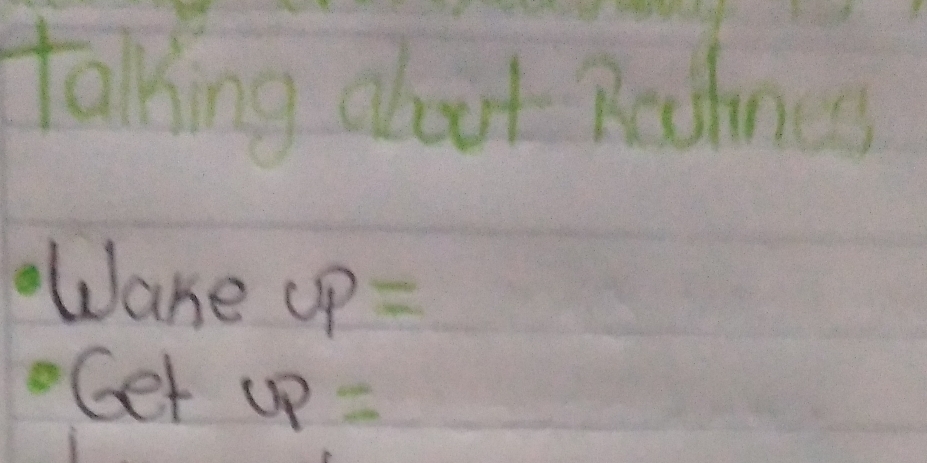 Talking about Routines
• Wake up =
• Get up =